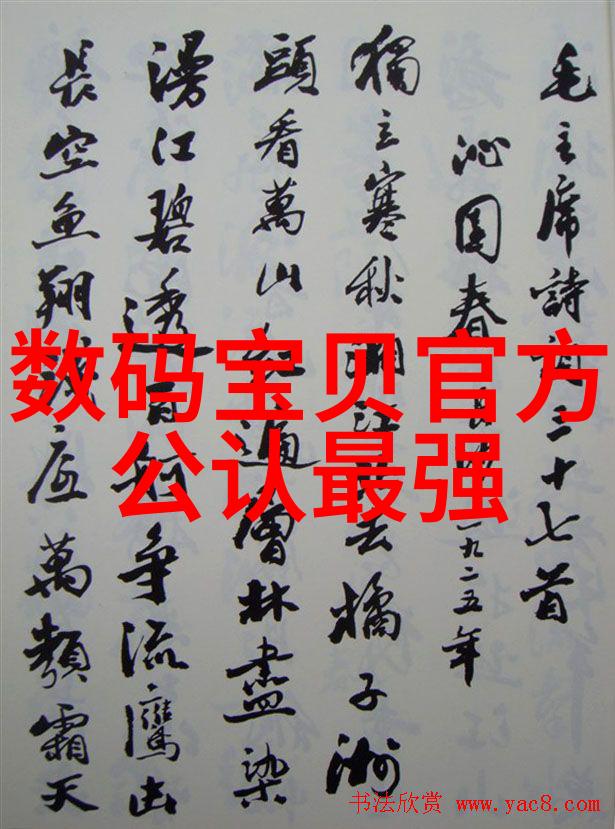 毛主席詩詞三十七首
沁园春 長沙 一九二五年
獨立寒秋湘江北去橘子洲
頭看萬山紅遍層林盡染
漫江碧透百舸争流鷹击
長空鱼翔浅底萬類霜天
数码宝贝官方
公认最强
书法欣赏 www.yac8.com